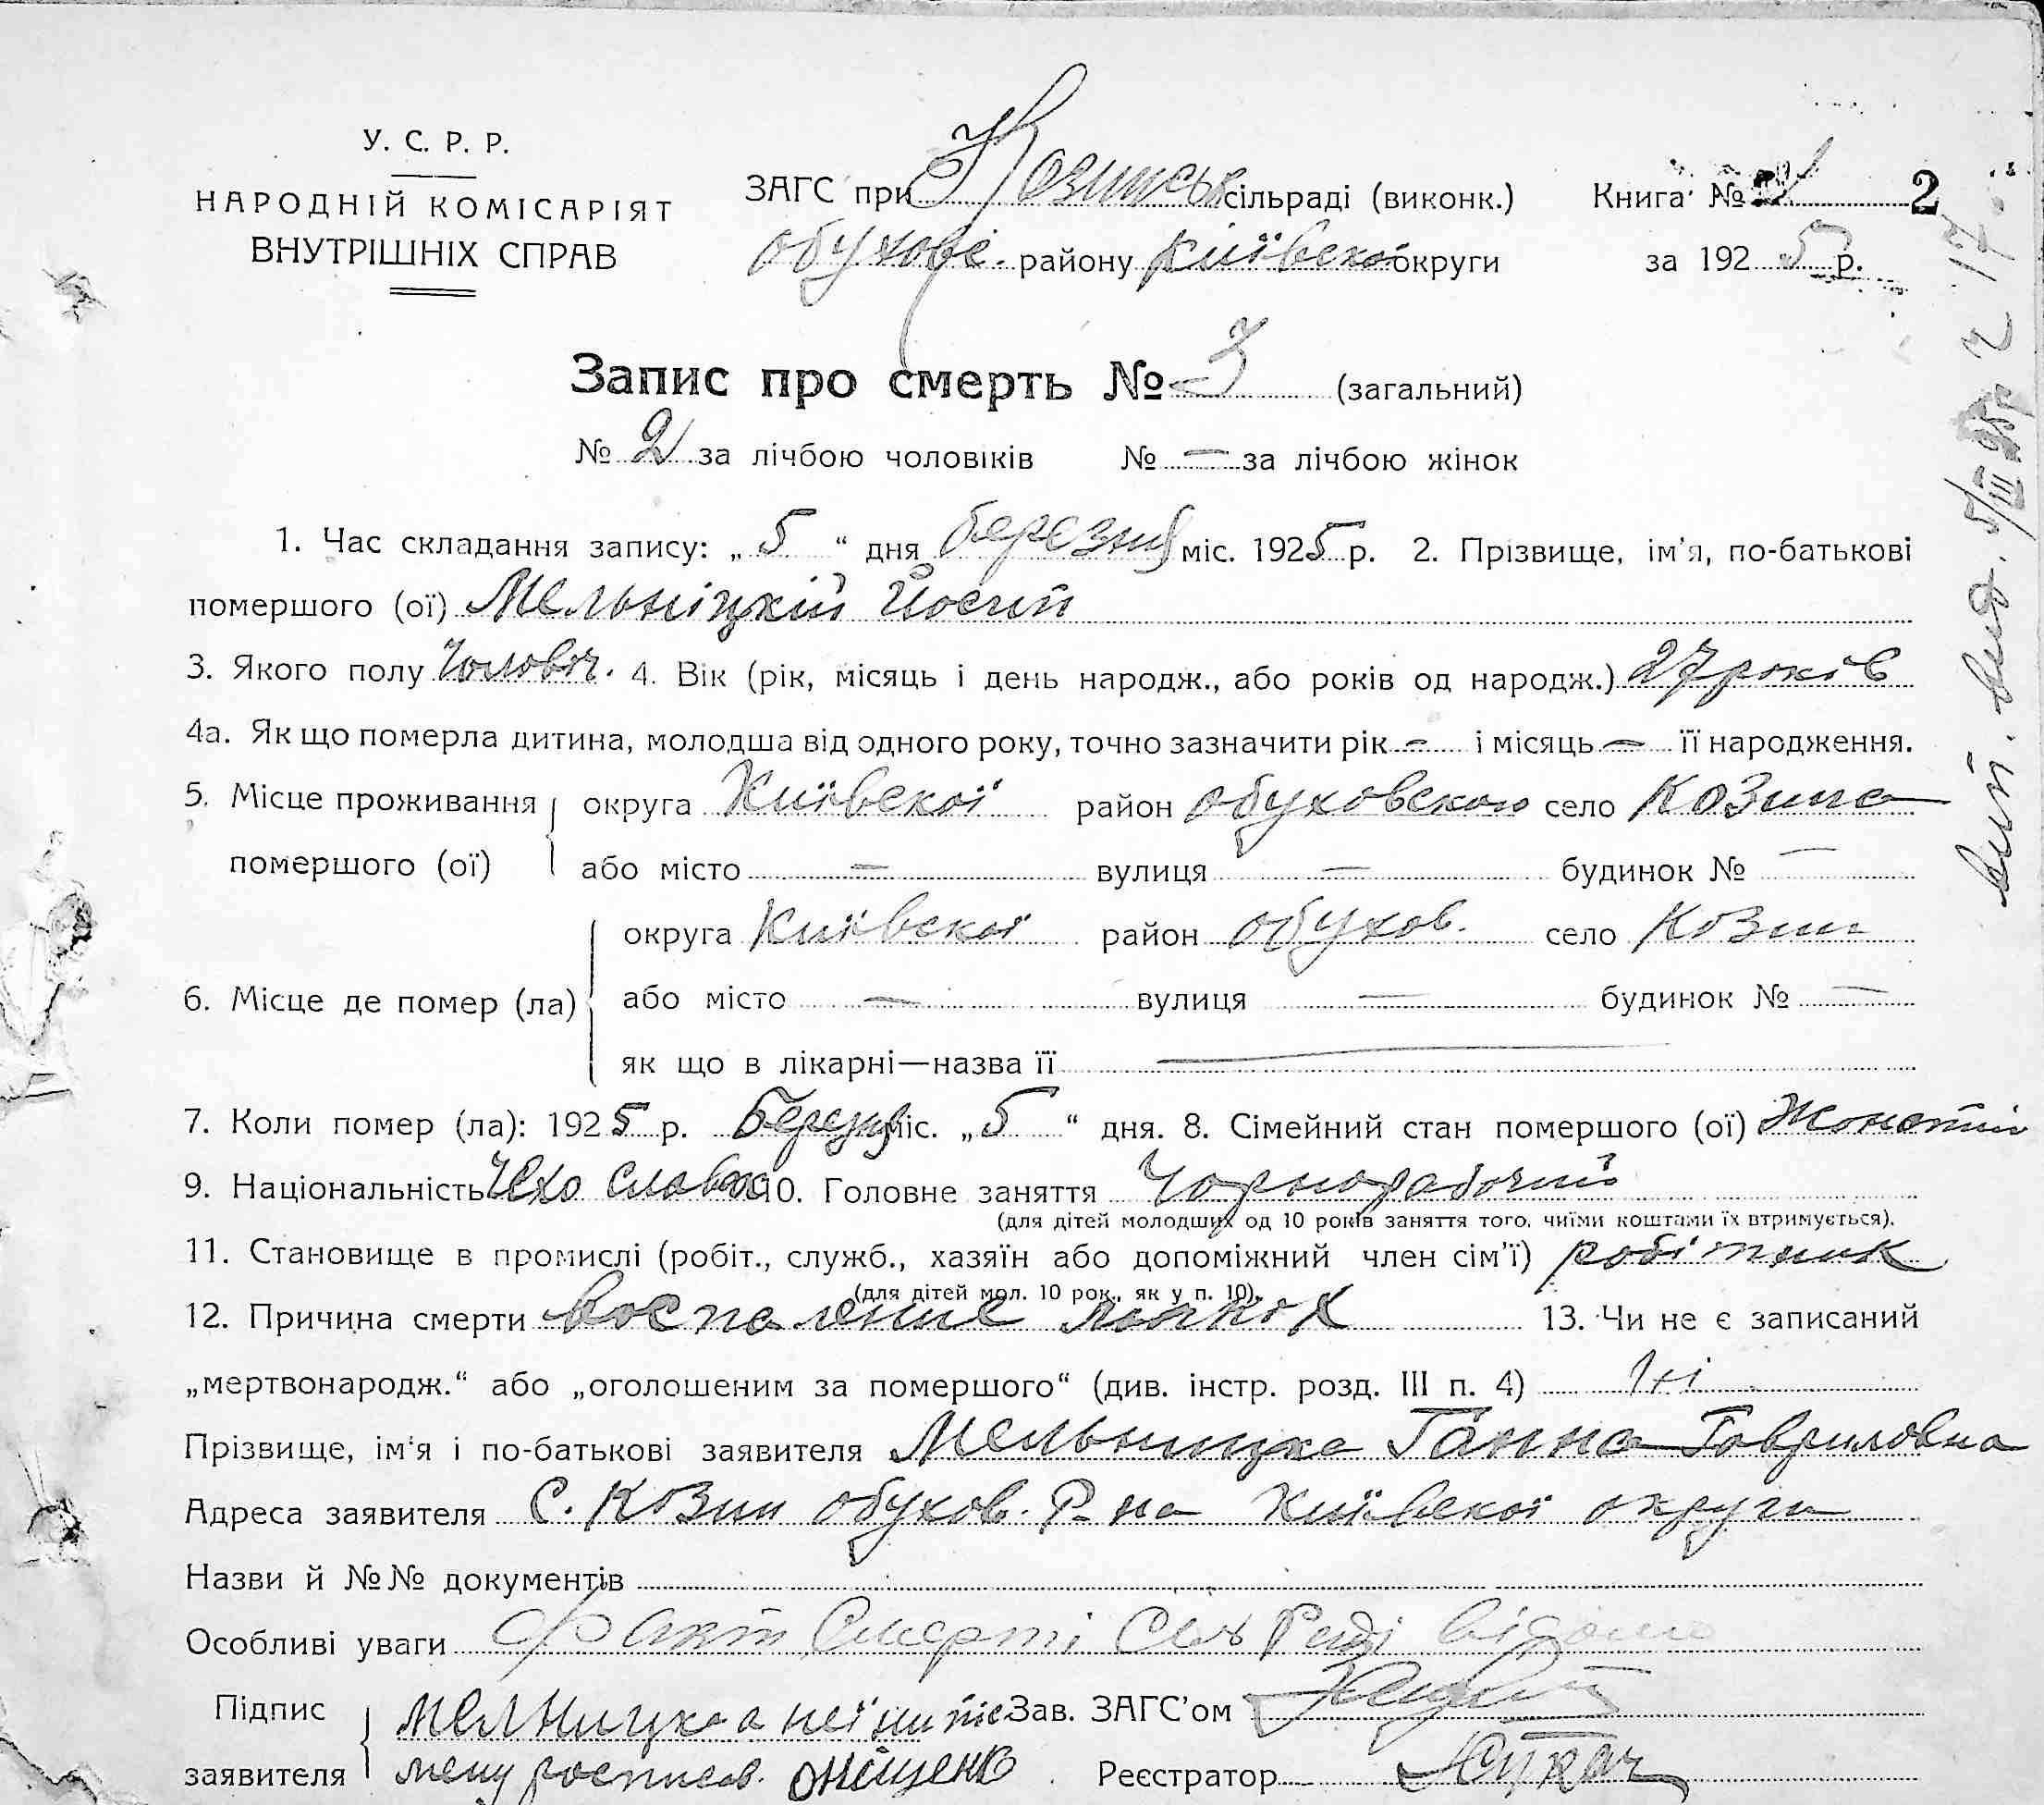 У. С. Р. Р.
НАРОДНІЙ КОМІСАРІЯТ
ВНУТРІШНІХ СПРАВ
ЗАГС при Козинськ сільраді (виконк.)
Обухове. району Київської округи
Книга № 2
за 1925 р.
Запис про смерть № 3 (загальний)
№ 2 за лічбою чоловіків № — за лічбою жінок
1. Час складання запису: „ 5 “ дня березня міс. 1925 р. 2. Прізвище, ім'я, по-батькові
помершого (ої) Мельніцкій Йосип
3. Якого полу Чоловіч. 4. Вік (рік, місяць і день народж., або років од народж.) 27 років
4а. Як що померла дитина, молодша від одного року, точно зазначити рік — і місяць — її народження.
5. Місце проживання округа Київскої район Обуховского село Козина
помершого (ої) або місто — вулиця — будинок № —
округа Київскої район Обухов. село Козин
6. Місце де помер (ла) або місто — вулиця — будинок № —
як що в лікарні—назва її —
7. Коли помер (ла): 1925 р. Березня міс. „ 5 “ дня. 8. Сімейний стан помершого (ої) Жонатий
9. Національність Чехо словак 10. Головне заняття Чорнорабочий
(для дітей молодших од 10 років заняття того, чиїми коштами їх втримується).
11. Становище в промислі (робіт., служб., хазяїн або допоміжний член сім'ї) робітник
(для дітей мол. 10 рок., як у п. 10).
12. Причина смерти воспаление льокох 13. Чи не є записаний
„мертвонародж.“ або „оголошеним за помершого“ (див. інстр. розд. III п. 4) Ні
Прізвище, ім'я і по-батькові заявителя Мельницка Ганна Гавриловна
Адреса заявителя С. Козин Обухов. Р-на Київскої округи
Назви й №№ документів
Особливі уваги Факт Смерті Сіль Раді відомо
Підпис Мелницка а неї
Зав. ЗАГС'ом
заявителя Оніщенко
Реєстратор